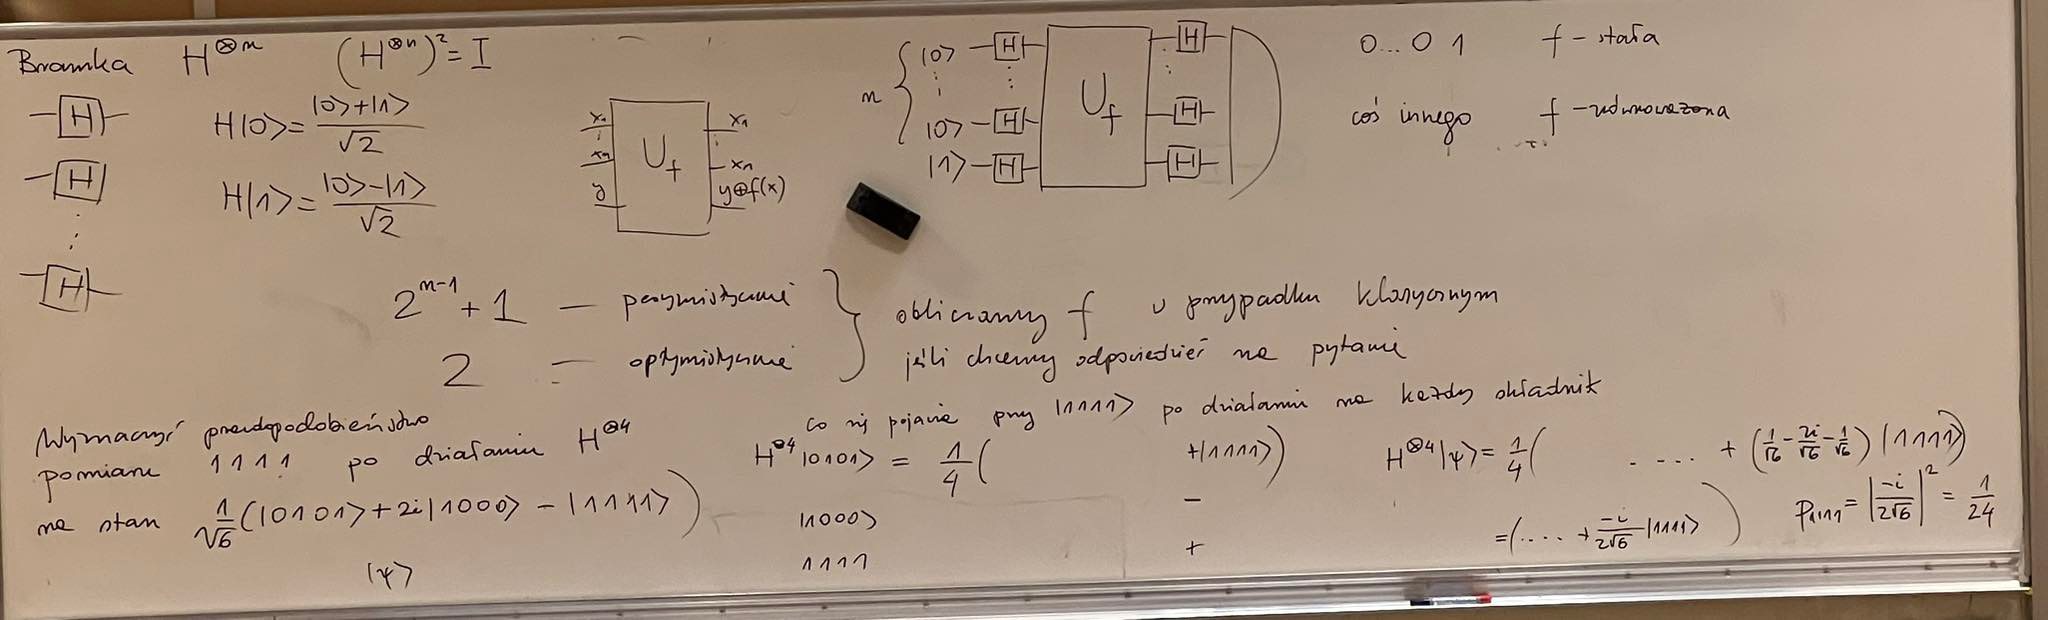 Bramka H^{⊗n} (H^{⊗n})² = I
H
H
⋮
H
H|0> = |0>+|1> / √2
H|1> = |0>-|1> / √2
x₁ x₁
⋮ ⋮
xₙ U_f xₙ
y y⊕f(x)
n { |0> H H
⋮ ⋮ U_f ⋮
|0> H H
|1> H H
0...0 1 f - stała
coś innego f - zrównoważona
2^{n-1} + 1 — pesymistycznie
2 — optymistycznie
} obliczamy f w przypadku klasycznym
jeśli chcemy odpowiedzieć na pytanie
Wyznaczyć prawdopodobieństwo
pomiaru 1111 po działaniu H^{⊗4}
na stan 1/√6 (|0101> + 2i|1000> - |1111>)
|ψ>
co się pojawia przy |1111> po działaniu na każdy składnik
H^{⊗4} |0101> = 1/4 ( +|1111>)
|1000> -
1111 +
H^{⊗4}|ψ> = 1/4 ( .... + (1/√6 - 2i/√6 - 1/√6) |1111>)
= (.... + -i/2√6 |1111>)
P₁₁₁₁ = |-i/2√6|² = 1/24